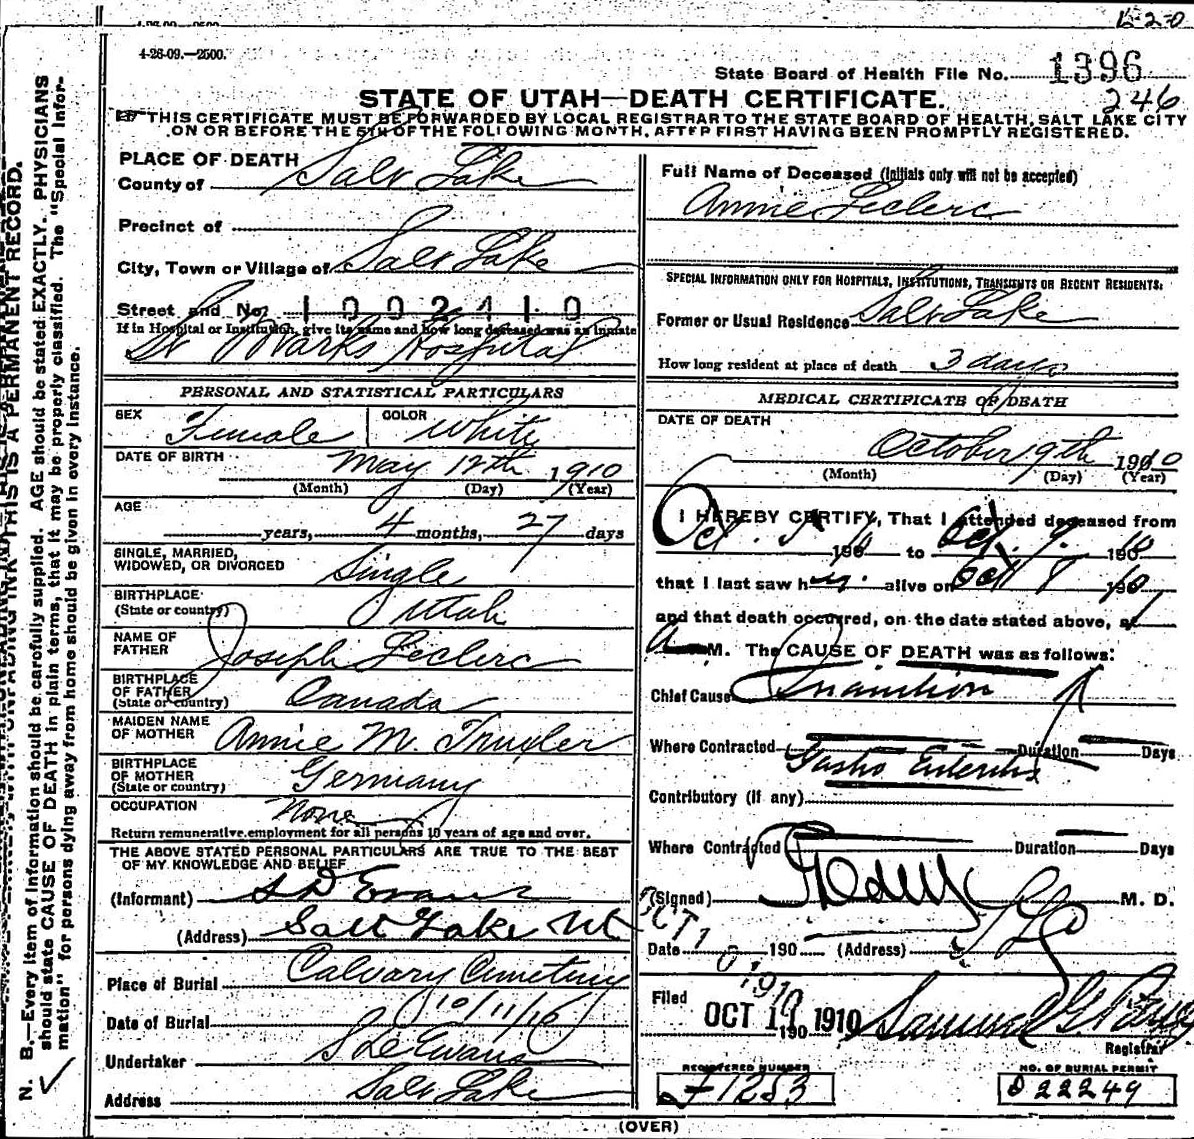 L-2-0
4-26-09.—2500.
State Board of Health File No. 1396
246
STATE OF UTAH—DEATH CERTIFICATE.
THIS CERTIFICATE MUST BE FORWARDED BY LOCAL REGISTRAR TO THE STATE BOARD OF HEALTH, SALT LAKE CITY
ON OR BEFORE THE 5TH OF THE FOLLOWING MONTH, AFTER FIRST HAVING BEEN PROMPTLY REGISTERED.
N. B.—Every item of information should be carefully supplied. AGE should be stated EXACTLY. PHYSICIANS
should state CAUSE OF DEATH in plain terms, that it may be properly classified. The "Special Infor-
mation" for persons dying away from home should be given in every instance.
THIS IS A PERMANENT RECORD.
PLACE OF DEATH
County of Salt Lake
Precinct of
City, Town or Village of Salt Lake
Street and No. 1002410
If in Hospital or Institution, give its name and how long deceased was an inmate
St Marks Hospital
PERSONAL AND STATISTICAL PARTICULARS
SEX Female COLOR White
DATE OF BIRTH May 12th 1910
(Month) (Day) (Year)
AGE
years, 4 months, 27 days
SINGLE, MARRIED,
WIDOWED, OR DIVORCED Single
BIRTHPLACE
(State or country) Utah
NAME OF
FATHER Joseph Leclerc
BIRTHPLACE
OF FATHER
(State or country) Canada
MAIDEN NAME
OF MOTHER Annie M.
BIRTHPLACE
OF MOTHER
(State or country) Germany
OCCUPATION None
Return remunerative employment for all persons 10 years of age and over.
THE ABOVE STATED PERSONAL PARTICULARS ARE TRUE TO THE BEST
OF MY KNOWLEDGE AND BELIEF
(Informant) S D Evans
(Address) Salt Lake Ut
Place of Burial Calvary Cemetery
Date of Burial 10/11/10
Undertaker S D Evans
Address Salt Lake
Full Name of Deceased (Initials only will not be accepted)
Annie Leclerc
SPECIAL INFORMATION ONLY FOR HOSPITALS, INSTITUTIONS, TRANSIENTS OR RECENT RESIDENTS:
Former or Usual Residence Salt Lake
How long resident at place of death 3 days
MEDICAL CERTIFICATE OF DEATH
DATE OF DEATH
October 9th 1910
(Month) (Day) (Year)
I HEREBY CERTIFY, That I attended deceased from
Oct. 5 190 to Oct. 9. 190
that I last saw her alive on Oct 8 190
and that death occurred, on the date stated above, at
a M. The CAUSE OF DEATH was as follows:
Chief Cause Inanition
Where Contracted Duration Days
Gastro Enteritis
Contributory (if any)
Where Contracted Duration Days
(Signed) M. D.
Date OCT 10 1910 190 (Address)
Filed OCT 1 190 1910 Samuel G
Registrar
REGISTERED NUMBER
1253
NO. OF BURIAL PERMIT
D 22249
(OVER)